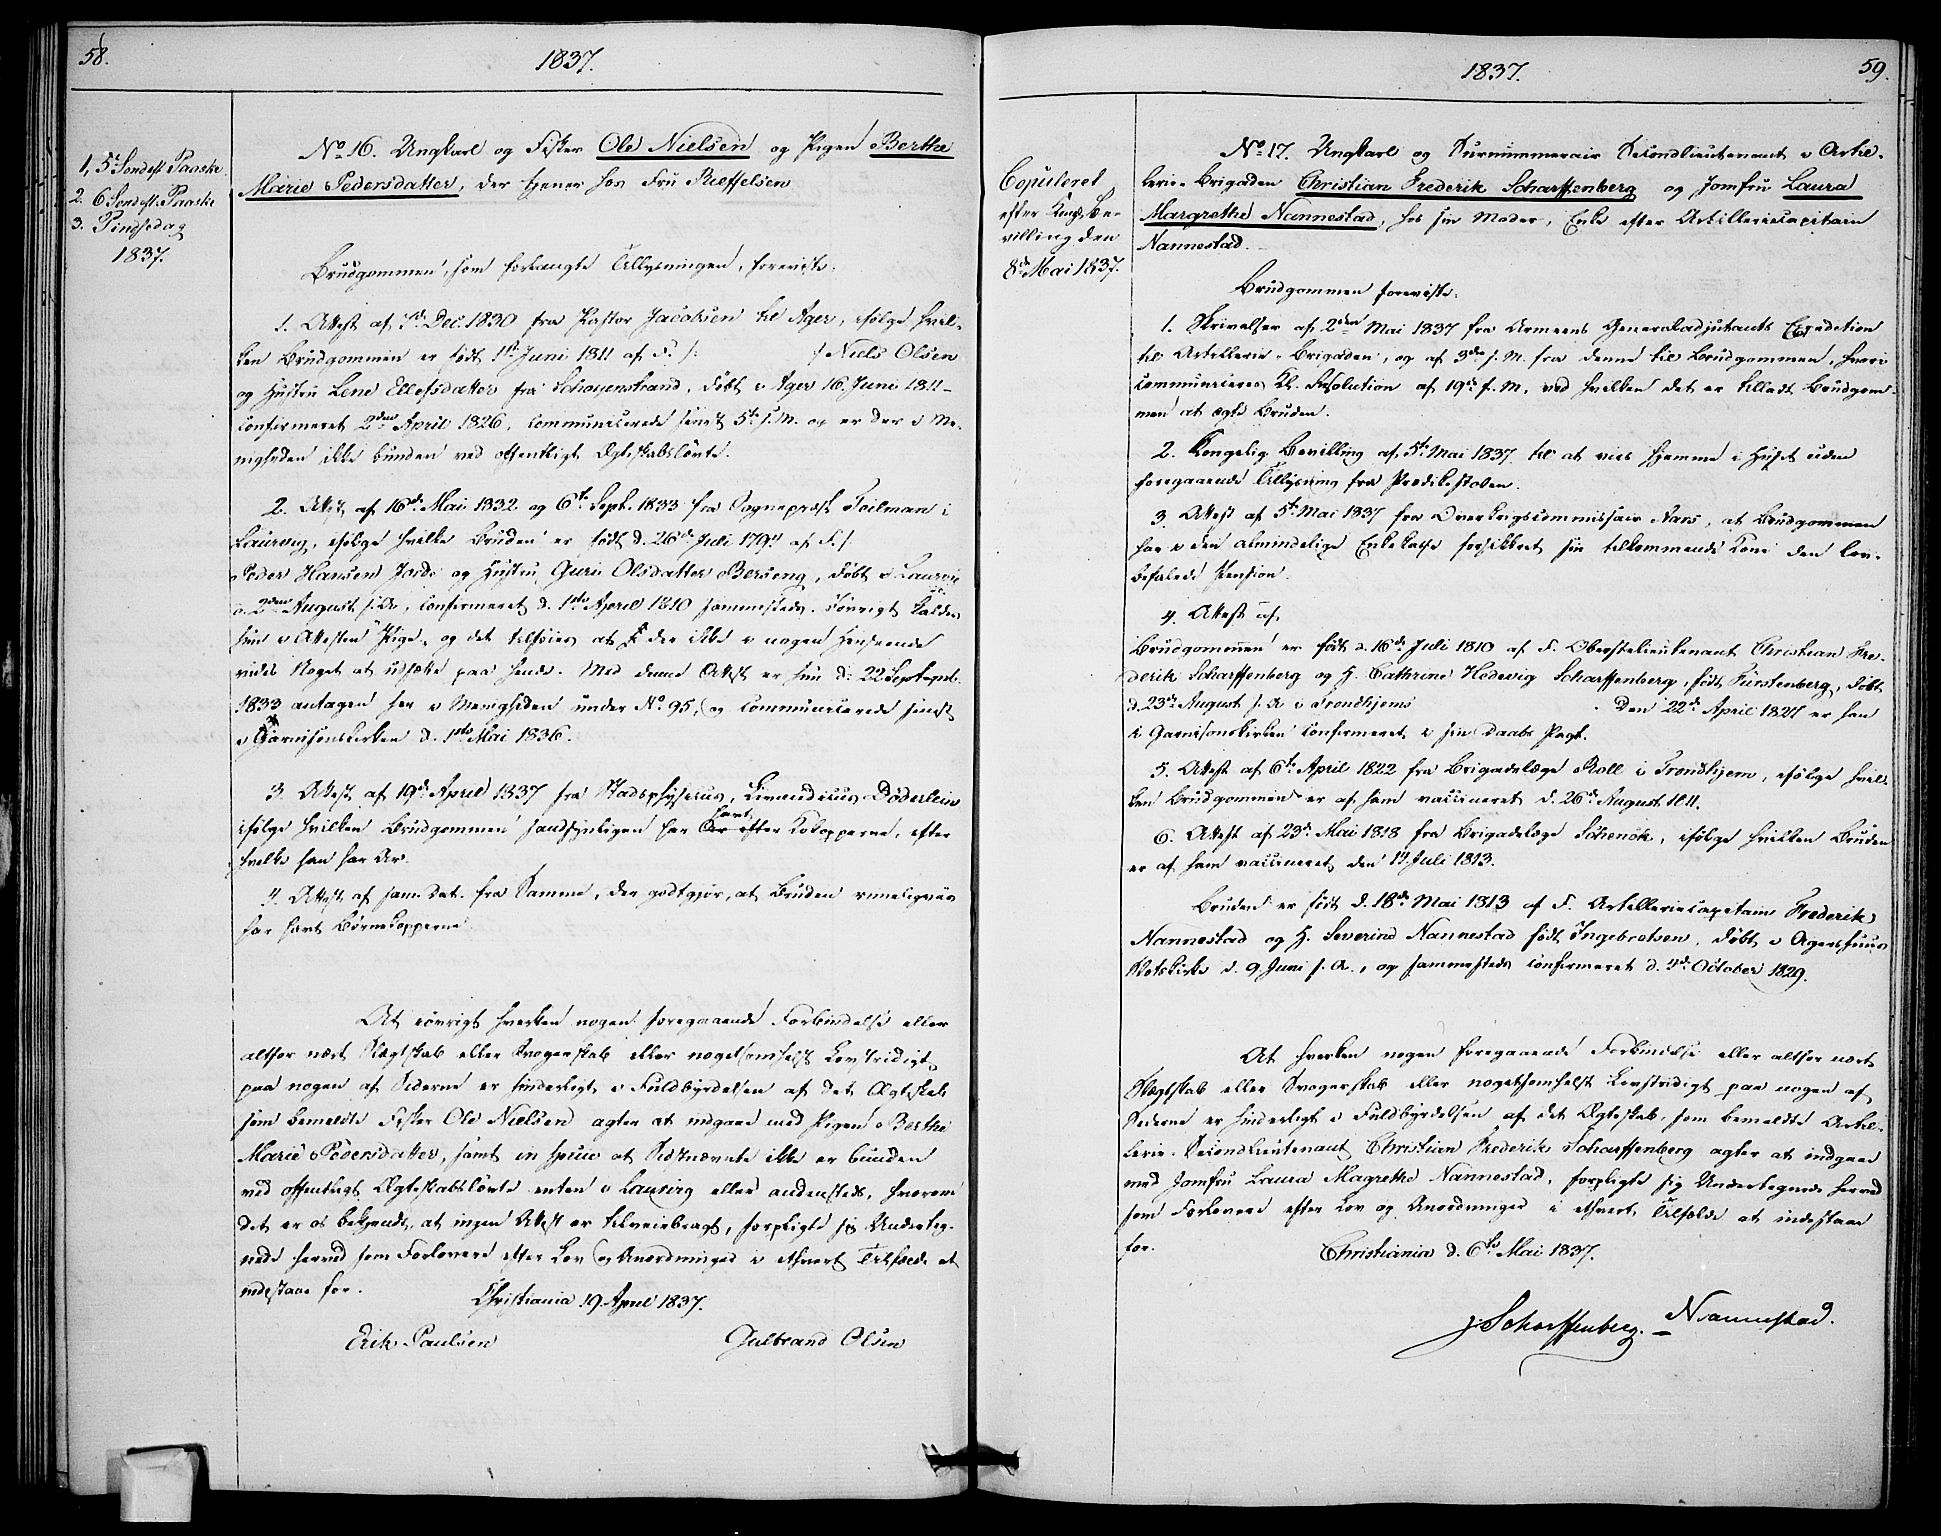 58.
1837.
1, 5te Søndag e. Paaske
2. 6 Sønd. e. Paaske
3. Pindsedag
1837.
No 16. Ungkarl og Fisker Ole Nielsen og Pigen Berthe
Marie Pedersdatter, der tjener hos Fru Rieffelsen
Brudgommen, som forlangte Tillysningen, foreviste:
1. Attest af Dec. 1830 fra Pastor Jacobsen til Ager, ifølge hvil-
ken Brudgommen er født 1ste Juni 1811 af F. /: /Niels Olsen
og Hustru Lene Ellefsdatter fra Schøyenstrand, døbt i Ager 16 Juni 1811 –
confirmeret 2den April 1826, communicerede sidst 5te f. M. og er der i Me-
nigheden ikke bunden ved offentligt Ægteskabsløvte.
2. Attest af 16de Mai 1832 og 6te Sept. 1833 fra Sognepræst Teilman i
Laurvig, ifølge hvilke Bruden er født d. 26de Juli 1794 af F. /:
Peder Hansen Jorde og Hustru Gurie Olsdatter Berseng, døbt i Laurvig
d. 2den August s. A., confirmeret d. 1ste April 1810 sammesteds. Iøvrigt kaldes
hun i Attesten "Pige", og det tilføies at der ikke i nogen Henseende
vides Noget at udsætte paa hende. Med denne Attest er hun d. 22 Sept.
1833 antagen her i Menigheden under No 95, og communicerede sidst
i Garnisonskirken d. 1ste Mai 1836.
3. Attest af 19de April 1837 fra Stadsphysicus, Døderlein
ifølge hvilken Brudgommen sandsynligen har havt Kokopperne, efter
hvilke han har Ar.
4. Attest af samme Dat. fra Samme, der godtgjør, at Bruden rimeligviis
har havt Børnekopperne
At iøvrigt hverken nogen foregaaende Forbindelse eller
altfor nært Slægtskab eller Svogerskab eller nogetsomhelst Lovstridigt
paa nogen af Siderne er hinderligt i Fuldbyrdelsen af det Ægteskab
som bemeldte Fisker Ole Nielsen agter at indgaae med Pigen Berthe
Marie Pedersdatter, samt in specie at Sidstnævnte ikke er bunden
ved offentligt Ægteskabsløvte enten i Laurvig eller andensteds, hvorom
det er os bekjendt, at ingen Attest er tilveiebragt, forpligte sig Underteg-
nede herved som Forlovere efter Lov og Anordninger i ethvert Tilfælde at
indestaae for.
Christiania 19. April 1837.
Erik Paulsen Gulbrand Olsen
1837.
59.
Copuleret
efter Kngl. Be-
villing den
8de Mai 1837.
No 17. Ungkarl og Surnummerair Secondlieutenant i Artil-
lerie-Brigaden Christian Frederik Scharffenberg og Jomfru Laura
Margrethe Nannestad, hos sin Moder, Enke efter Artilleriecapitain
Nannestad.
Brudgommen foreviste:
1. Skrivelser af 2den Mai 1837 fra Armeens Generaladjutants Expedition
til Artillerie-Brigaden, og af 3die s. M. fra denne til Brudgommen, hvori
communiceres Kl. Resolution af 19de f. M, ved hvilken det er tilladt Brudgom-
men at ægte Bruden.
2. Kongelig Bevilling af 5te Mai 1837 til at vies hjemme i Huset uden
foregaaende Tillysning fra Prædikestolen.
3. Attest af 5te Mai 1837 fra Overkrigscommissair, at Brudgommen
har i den almindelige Enkekasse forsikkret sin tilkommende Kone den lov-
befalede Pension.
4. Attest af,
Brudgommen er født d. 16de Juli 1810 af F. Oberstlieutenant Christian Fre-
derik Scharffenberg og H. Cathrine Hedevig Scharffenberg, født Fürstenberg, døbt
d. 23de August s. A i Trondhjems . Den 22de April 1827 er han
i Garnisonskirken confirmeret i sin Daabs Pagt.
5. Attest af 6te April 1822 fra Brigadelæge Roll i Trondhjem, ifølge hvil-
ken Brudgommen er af ham vaccineret d. 26de August 1811.
6. Attest af 23de Mai 1818 fra Brigadelæge Schenck, ifølge hvilken Bruden
er af ham vaccineret den 14 Juli 1813.
Bruden er født d. 18de Mai 1813 af F. Artilleriecapitain Frederik
Nannestad og H. Severine Nannestad født Ingebretsen, døbt i Agershuus
Slotskirke d. 9 Juni s. A., og sammesteds confirmeret d. 4de October 1829.
At hverken nogen foregaaende Forbindelse eller altfor nært
Slægtskab eller Svogerskab eller nogetsomhelst Lovstridigt paa nogen af
Siderne er hinderligt i Fuldbyrdelsen af det Ægteskab, som bemeldte Artil-
lerie-Secondlieutenant Christian Frederik Scharffenberg agter at indgaae
med Jomfru Laura Magrethe Nannestad, forpligte sig Undertegnede herved
som Forlovere efter Lov og Anordninger i ethvert Tilfælde at indestaae
for.
Christiania d. 6te Mai 1837.
J Scharffenberg. – Nannestad.